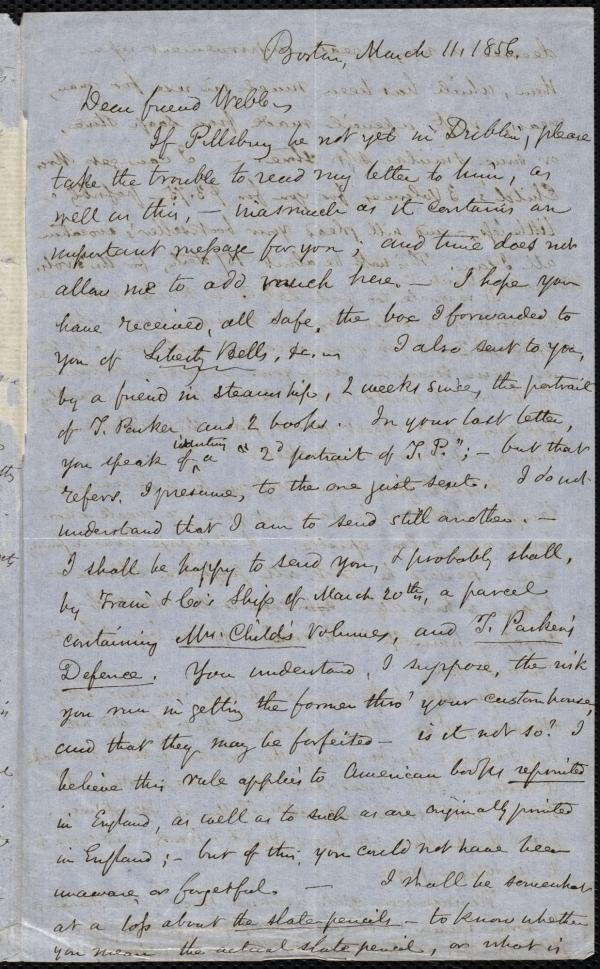 Boston, March 11, 1856.
Dear friend Webb,
If Pillsbury be not yet in Dublin, please
take the trouble to read my letter to him, as
well as this, — inasmuch as it contains an
important message for you; and time does not
allow me to add much here. — I hope you
have received, all safe, the box I forwarded to
you of Liberty Bells, &c.
I also sent to you,
by a friend in steamship, 2 weeks since, the portrait
of T. Parker and 2 books. In your last letter,
you speak of a "2d portrait of T. P."; — but that
refers, I presume, to the one just sent. I do not
understand that I am to send still another. —
I shall be happy to send you, & probably shall,
by Train & Co's Ship of March 20th, a parcel
containing Mrs. Child's volumes, and T. Parker's
Defence. You understand, I suppose, the risk
you run in getting the former thro' your customhouse,
and that they may be forfeited — is it not so? I
believe this rule applies to American books reprinted
in England, as well as to such as are originally printed
in England; — but of this, you could not have been
unaware, or forgetful. — I shall be somewhat
at a loss about the slate pencils — to know whether
you mean the actual slate pencil, or what is